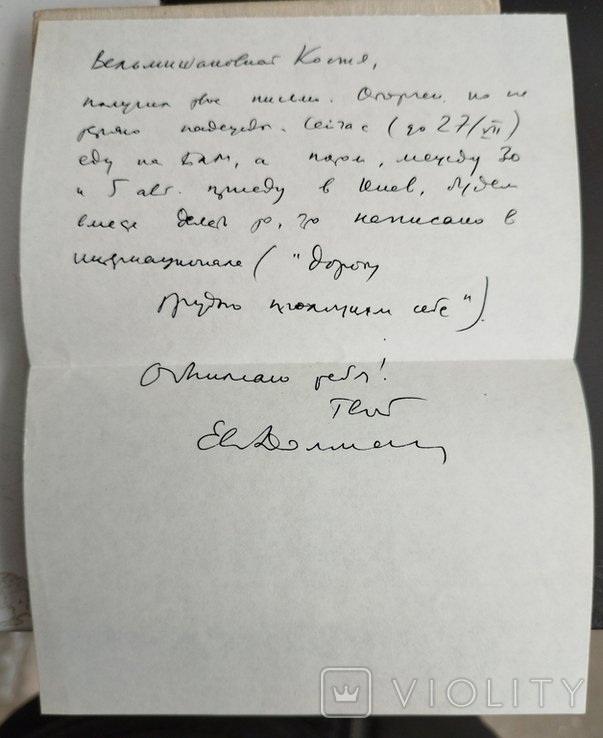 Вельмишановный Костя,
получил твое письмо. Огорчен, но не
теряю надежды. Сейчас (до 27/VII)
еду на БАМ, а потом, между 30
и 5 авг. приеду в Киев, будем
вместе делать то, что написано в
интернационале ("дорогу
грудью проложим себе").
Обнимаю тебя!
Твой
VIOLITY